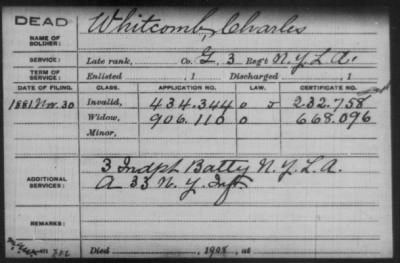 DEAD
NAME OF SOLDIER: Whitcomb, Charles
SERVICE: Late rank, Co. G, 3 Reg't N.Y.L.A.
TERM OF SERVICE: Enlisted , 1 Discharged , 1
DATE OF FILING. CLASS. APPLICATION NO. LAW. CERTIFICATE NO.
1881 Nov. 30 Invalid, 434.344 232.758
Widow, 906.110 668.096
Minor,
ADDITIONAL SERVICES: 3 Indpt Batty N.Y.L.A.
A 33 N.Y. Inf.
REMARKS:
Died , 190 , at